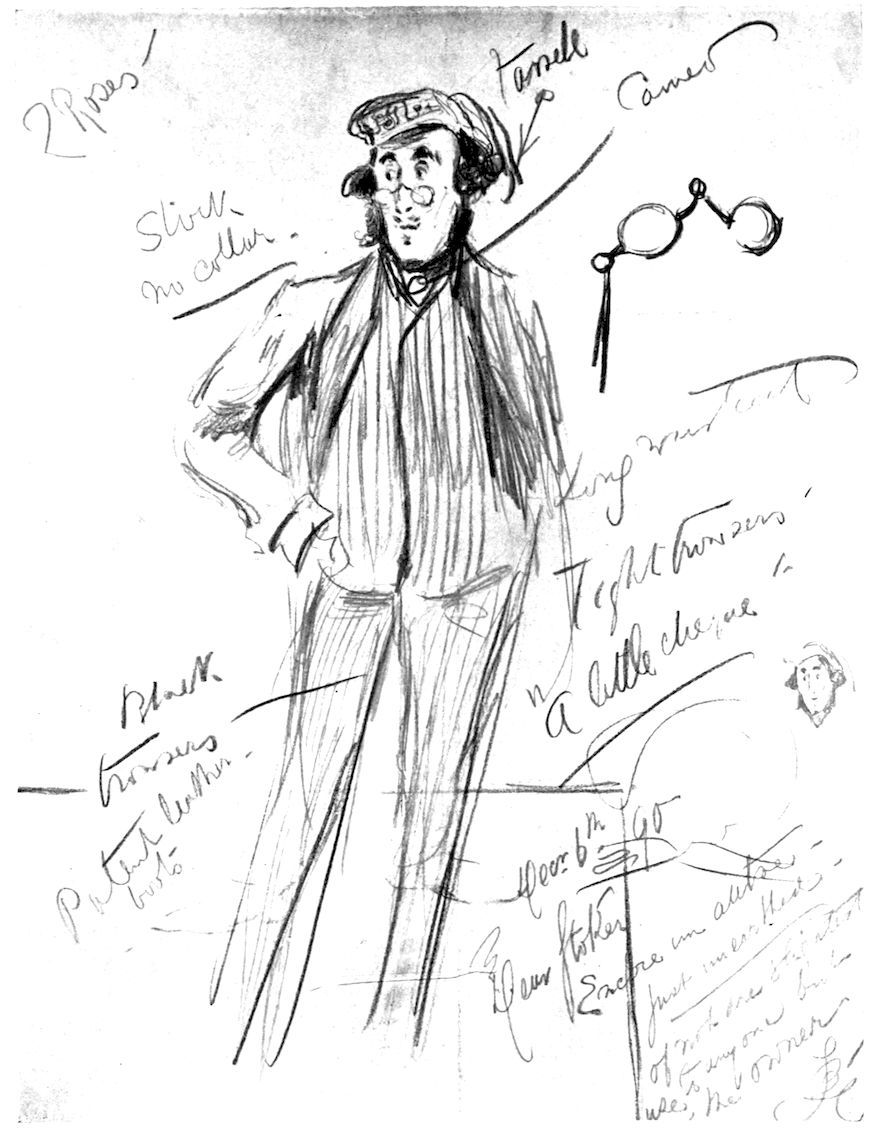 2 Roses
Tassell
Cameo
Stock
no collar
Long waistcoat
Tight trousers
A little cheque
Black
trousers
Patent leather
boots
Decr 6th 90
Dear Stoker
Encore un autre
just unearthed
of not one slightest
to anyone but
use, the owner